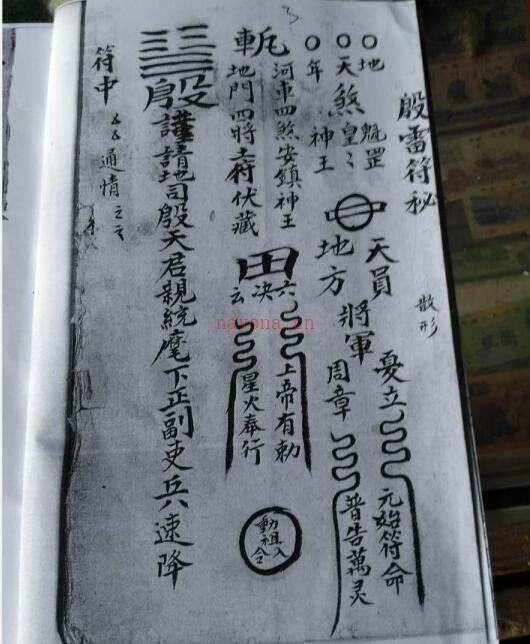 3
殷雷符秘
散形
地 魁罡
天煞皇〻
年 神王
天員
地方
將軍
憂立
周章
元始符命
普告萬灵
斬
河車四煞安鎮神王
地門四將土符伏藏
田
六
決
云
上帝有勅
星火奉行
動祖入令
殷
謹請地司殷天君親統麾下正副吏兵六速降
符中
通情
navona.cn